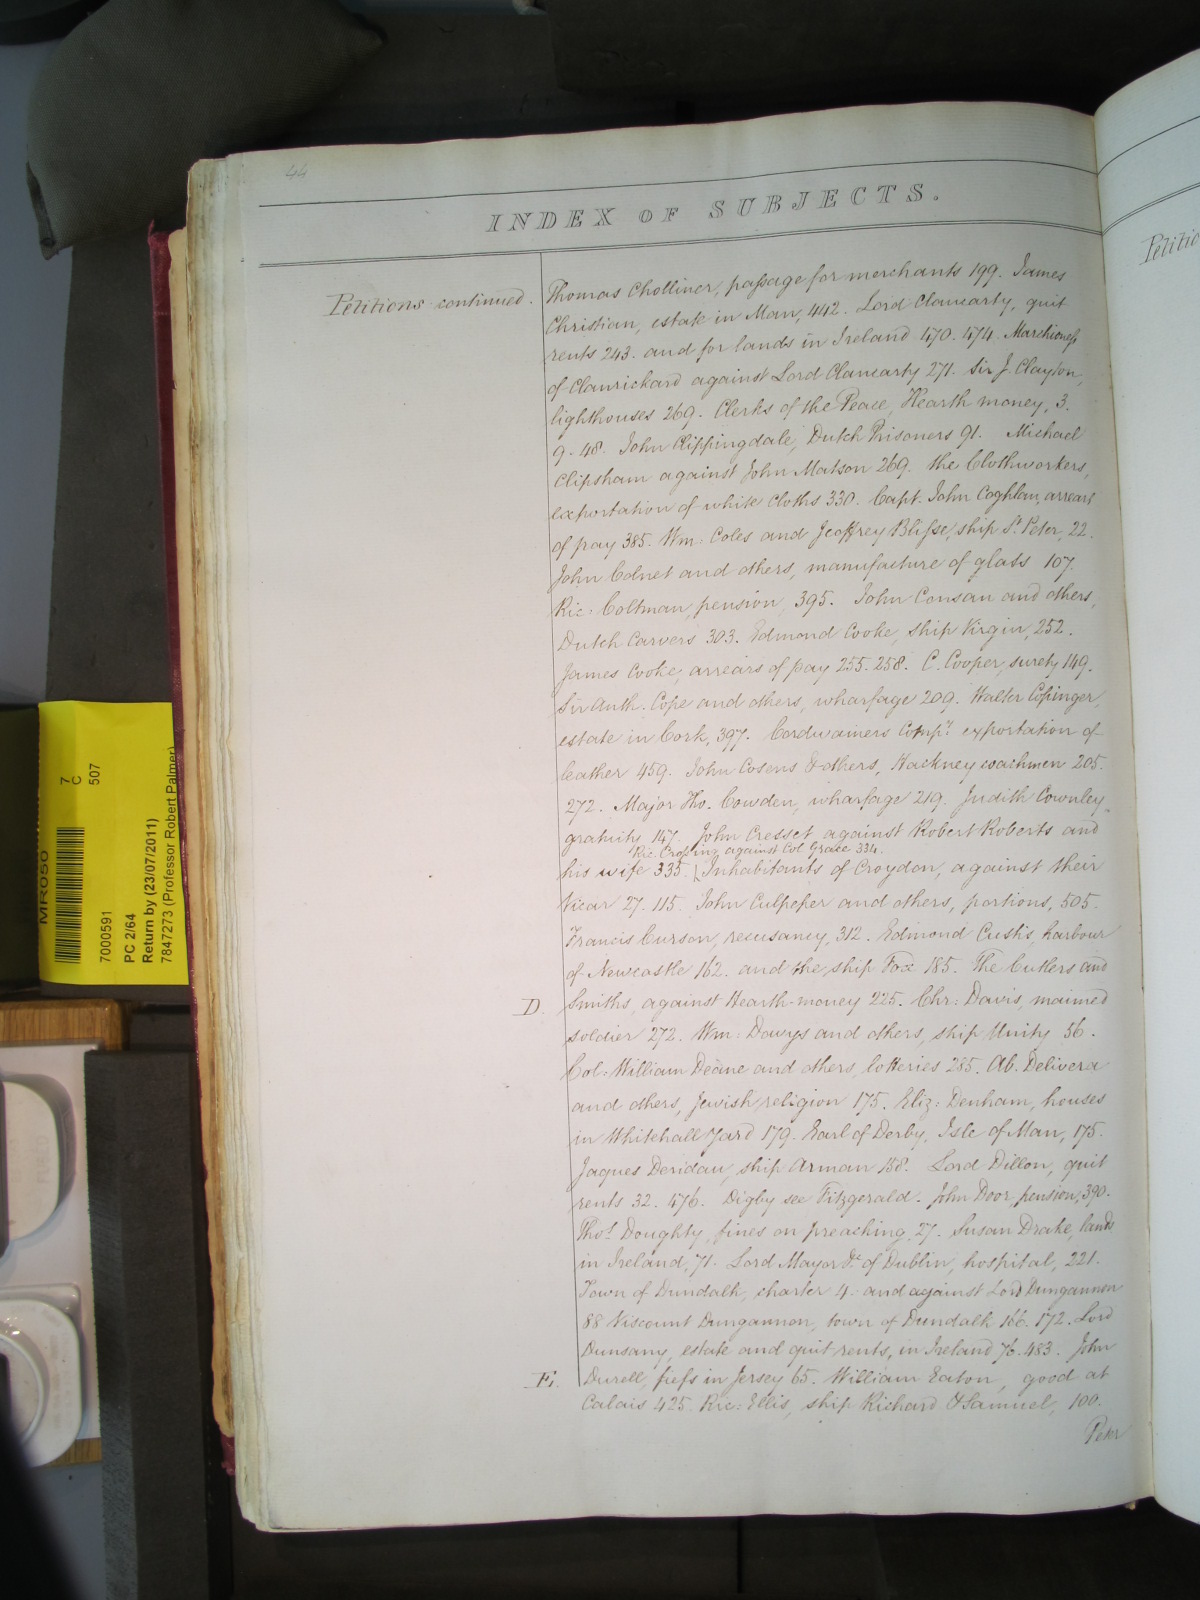 44
INDEX OF SUBJECTS.
Petitions continued.
Thomas Cholliner, passage for merchants 199. James
Christian, estate in Man, 442. Lord Clancarty, quit
rents 243. and for lands in Ireland 470. 474. Marchioness
of Clanrickard against Lord Clancarty 271. Sir J. Clayton,
lighthouses 269. Clerks of the Peace, Hearth money, 3.
9. 48. John Clippingdale, Dutch Prisoners 91. Michael
Clipsham against John Matson 269. the Clothworkers,
exportation of white cloths 330. Capt. John Coghlan, arrears
of pay 385. Wm: Coles and Jeoffrey Blisse, ship St. Peter, 22.
John Colnet and others, manufacture of glass 107.
Ric: Coltman, pension, 395. John Consan and others,
Dutch Carvers 303. Edmond Cooke, ship Virgin, 252.
James Cooke, arrears of pay 255. 258. C. Cooper, surety 149.
Sir Anth. Cope and others, wharfage 209. Walter Copinger,
estate in Cork, 397. Cordwainers Compy. exportation of
leather 459. John Cosens & others, Hackney coachmen 205.
272. Major Tho. Cowden, wharfage 219. Judith Cownley,
gratuity 147. John Cresset against Robert Roberts and
Ric: Crossing against Col Grace 334.
his wife 335. Inhabitants of Croydon, against their
Vicar 27. 115. John Culpeper and others, portions, 505.
Francis Curson, recusancy, 312. Edmond Custis, harbour
of Newcastle 162. and the ship Fox 185. The Cutlers and
D. Smiths, against Hearth-money 225. Chr: Davis, maimed
soldier 272. Wm: Dawys and others, ship Unity 56.
Col: William Deane and others, lotteries 285. Ab. Delivera
and others, Jewish religion 175. Eliz: Denham, houses
in Whitehall Yard 179. Earl of Derby, Isle of Man, 175.
Jaques Deridau, ship Arman 158. Lord Dillon, quit
rents 32. 476. Digby see Fitzgerald. John Door, pension, 390.
Thos. Doughty, fines on preaching 27. Susan Drake, lands
in Ireland, 71. Lord Mayor &c of Dublin, hospital, 221.
Town of Dundalk, charter 4. and against Lord Dungannon
88 Viscount Dungannon, town of Dundalk 166. 172. Lord
Dunsany, estate and quit rents, in Ireland 76. 483. John
E. Durell, fiefs in Jersey 65. William Eaton, good at
Calais 425. Ric: Ellis, ship Richard & Samuel, 100.
Peter
Petitio
7
C
507
MR050
7000591
PC 2/64
Return by (23/07/2011)
7847273 (Professor Robert Palmer)